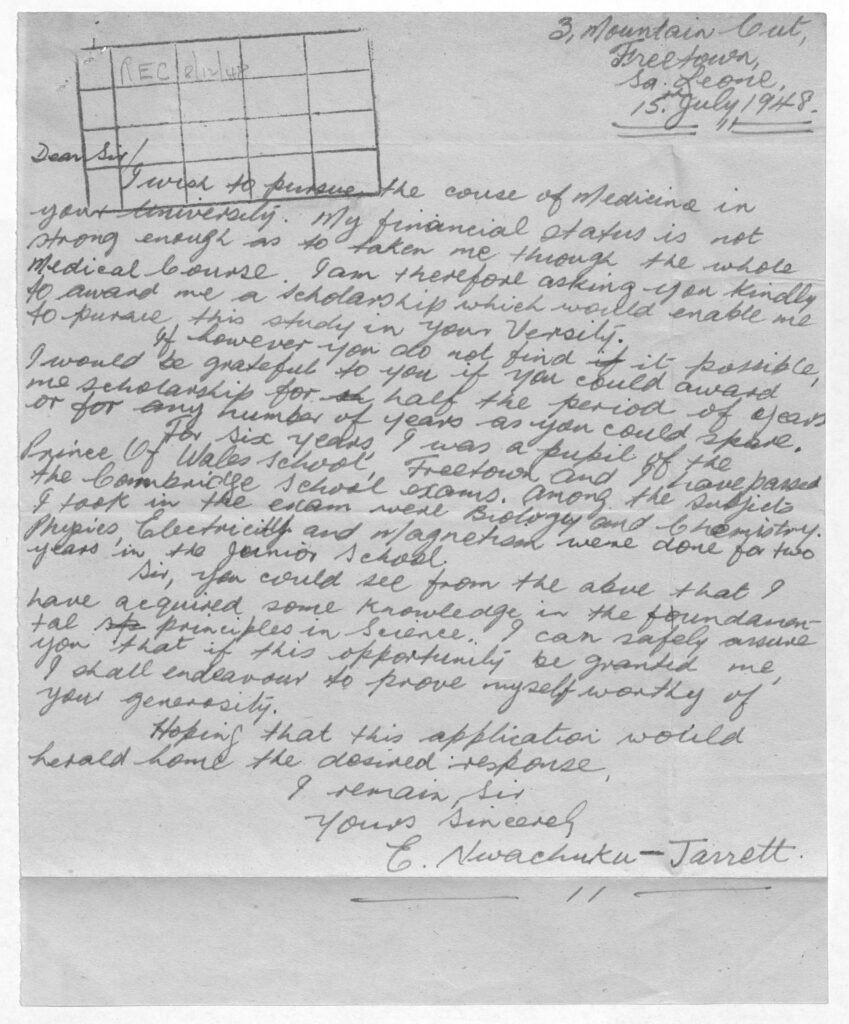 3, Mountain Cut,
Freetown,
Sa. Leone,
15th July 1948.
REC 8/12/48
Dear Sir/
I wish to pursue the couse of Medicine in
your University. My financial status is not
strong enough as to taken me through the whole
Medical Course. I am therefore asking you kindly
to award me a scholarship which would enable me
to pursue this study in your Versity.
If however you do not find if it possible,
I would be grateful to you if you could award
me scholarship for sh half the period of years
or for any number of years as you could spare.
For six years, I was a pupil of the
Prince Of Wales School, Freetown and I have passed
the Cambridge School exams. Among the subjects
I took in the exam were Biology and Chemistry.
Physics, Electricity and Magnetism were done for two
years in the Junior School.
Sir, you could see from the abve that I
have acquired some knowledge in the foundamen-
tal principles in Science. I can safely assure
you that if this opportunity be granted me,
I shall endeavour to prove myself worthy of
your generosity.
Hoping that this application would
herald home the desired response,
I remain, Sir
Yours Sincerely
E. Nwachuku-Jarrett.